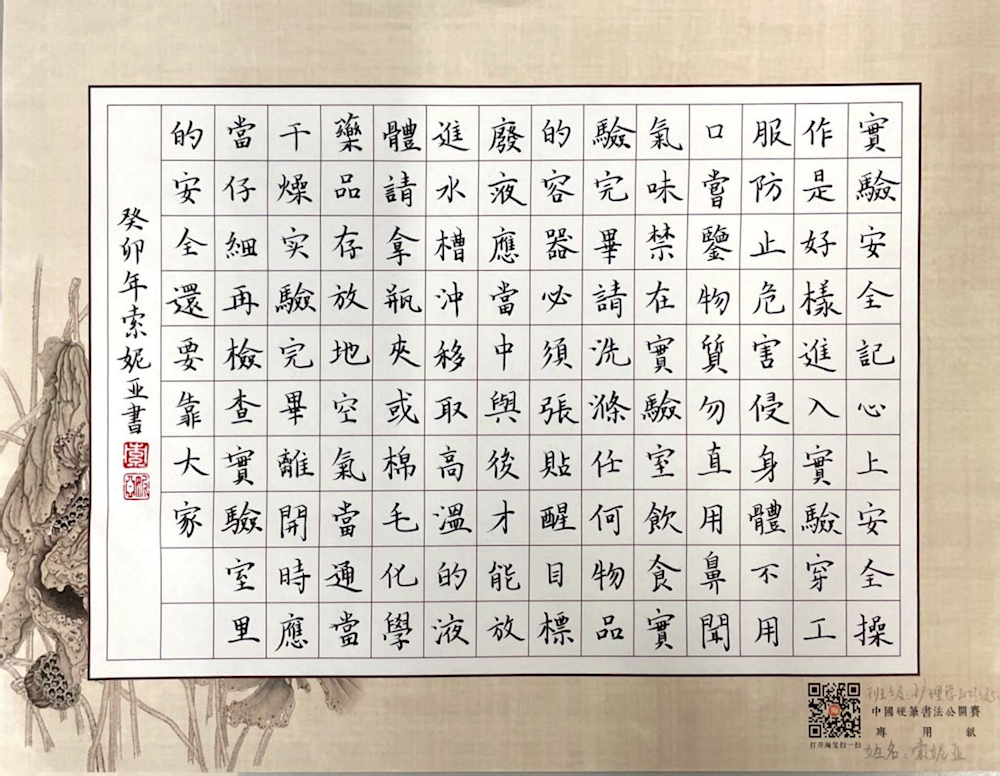 實驗安全記心上安全操
作是好樣進入實驗穿工
服防止危害侵身體不用
口嘗鑒物質勿直用鼻聞
氣味禁在實驗室飲食實
驗完畢請洗滌任何物品
的容器必須張貼醒目標
廢液應當中與後才能放
進水槽沖移取高溫的液
體請拿瓶夾或棉毛化學
藥品存放地空氣當通當
干燥实驗完畢離開時應
當仔細再檢查實驗室里
的安全還要靠大家
癸卯年索妮亚書
中國硬筆書法公開賽
專用紙
打开淘宝扫一扫
姓名：索妮亚